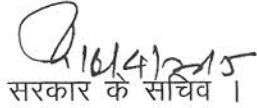 16/4/2015
सरकार के सचिव ।